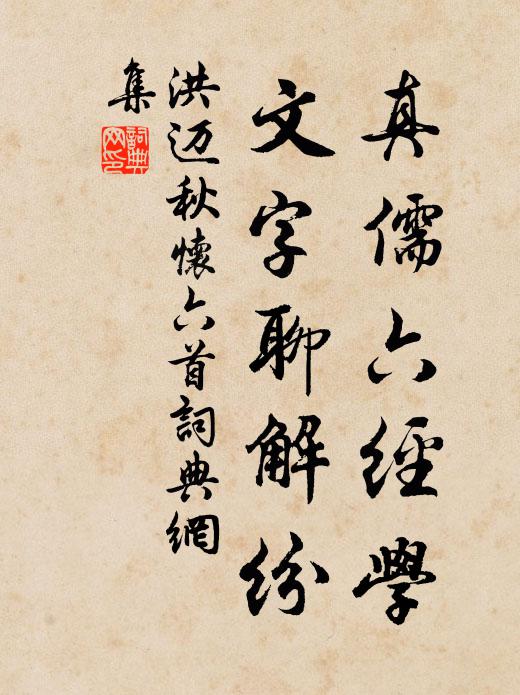 真儒六經學
文字聊解紛
洪迈秋懷六首詞典網
集
詞典
网印